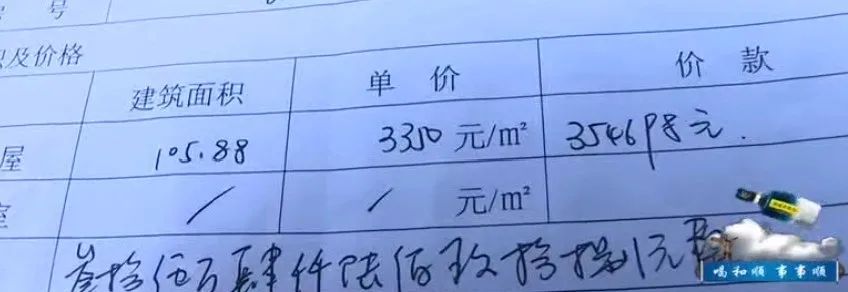 号
及价格
建筑面积 单价 价款
屋 105.88 3350 元/m² 354698元.
/ / 元/m²
叁拾伍万肆仟陆佰玖拾捌元整
喝和顺 事事顺